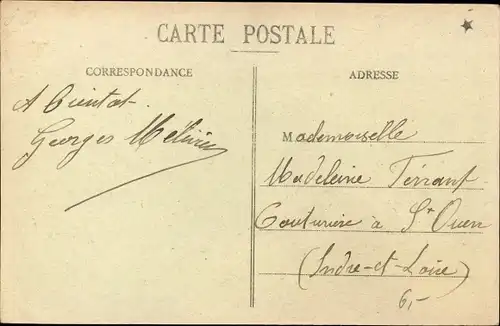 CARTE POSTALE
CORRESPONDANCE
A bientot
Georges
ADRESSE
Mademoiselle
Madeleine Terrant
Couturière à St Ouen
(Indre-et-Loire)
6,-